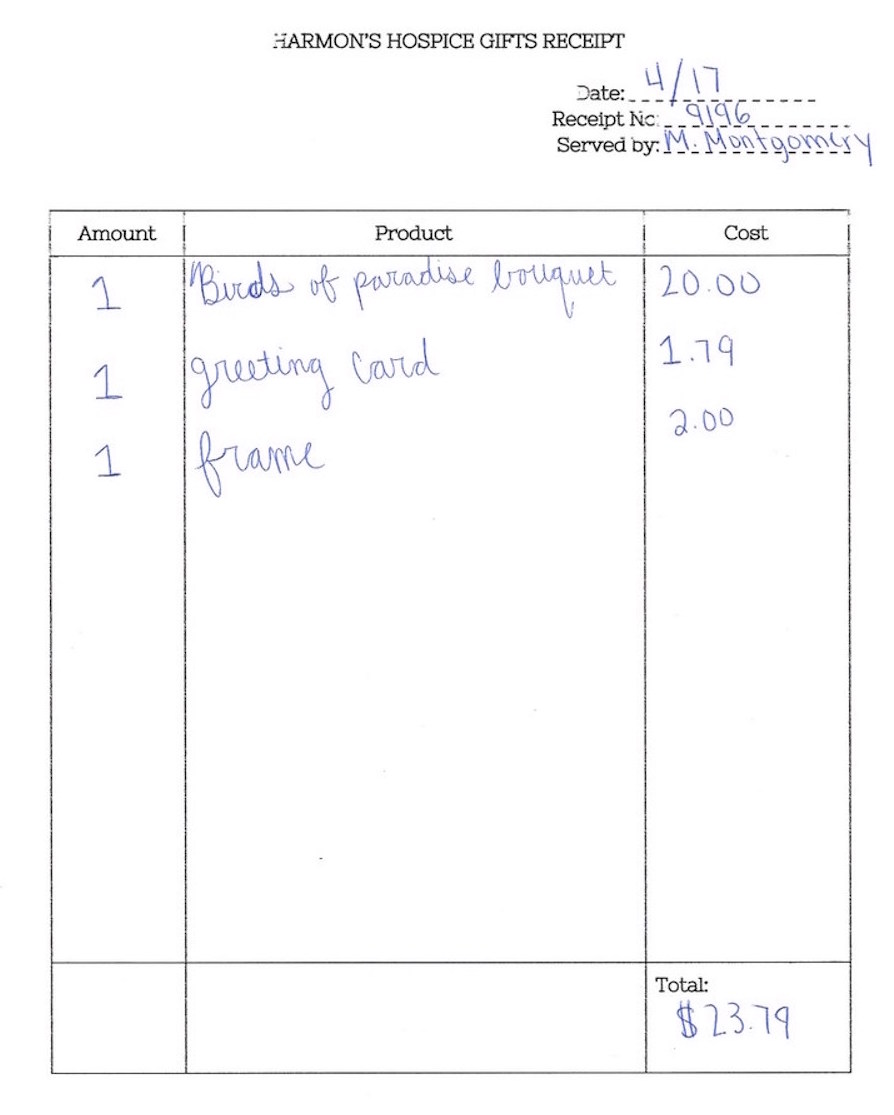 HARMON'S HOSPICE GIFTS RECEIPT
Date: 4/17
Receipt No: 9196
Served by: M. Montgomery
Amount Product Cost
1 Birds of paradise bouquet 20.00
1 greeting card 1.79
1 frame 2.00
Total:
$23.79